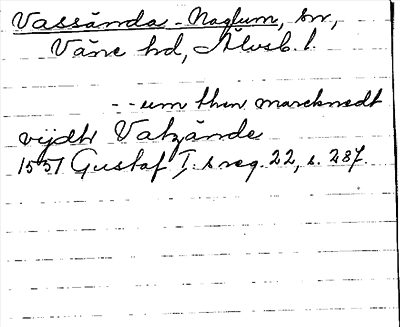 Vassända-Naglum, sn,
Väne hd, Älvsb. l.
--um then marcknedt
vijdh Vatzände
1551 Gustaf I:s reg. 22, s. 287.